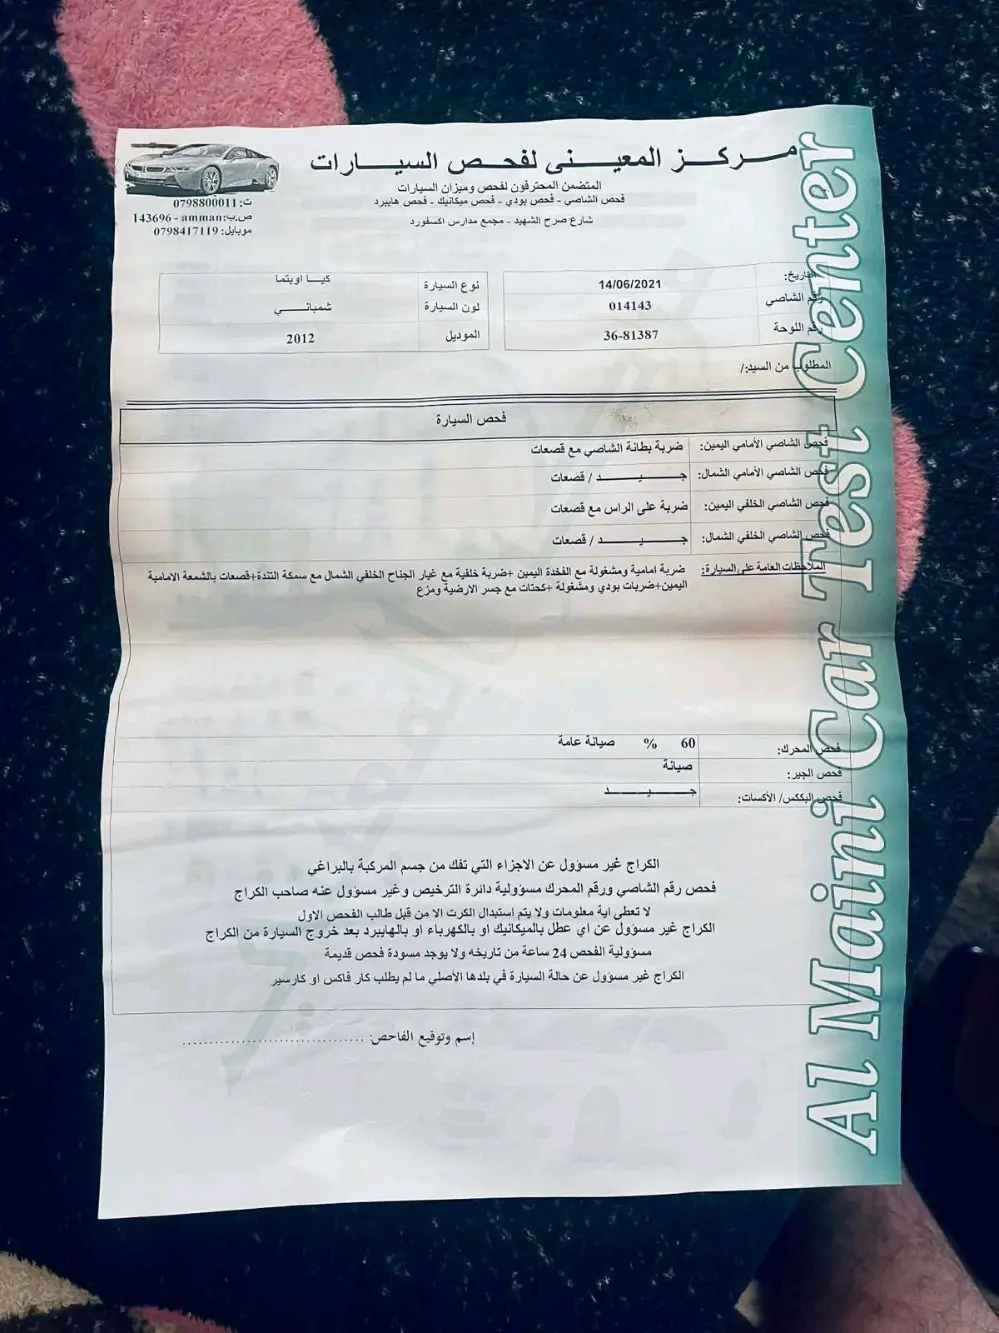 مركز المعيني لفحص السيارات
المتضمن المحترفون لفحص وميزان السيارات
فحص الشاصي - فحص بودي - فحص ميكانيك - فحص هايبرد
شارع صرح الشهيد - مجمع مدارس اكسفورد
ت: 0798800011
ص.ب: 143696 - amman
موبايل: 0798417119
التاريخ: 14/06/2021
رقم الشاصي 014143
رقم اللوحة 36-81387
نوع السيارة كيا اوبتما
لون السيارة شمباني
الموديل 2012
المطلوب من السيد:/
فحص السيارة
فحص الشاصي الأمامي اليمين: ضربة بطانة الشاصي مع قصعات
فحص الشاصي الأمامي الشمال: جيد / قصعات
فحص الشاصي الخلفي اليمين: ضربة على الراس مع قصعات
فحص الشاصي الخلفي الشمال: جيد / قصعات
الملاحظات العامة على السيارة: ضربة امامية ومشغولة مع الفخدة اليمين +ضربة خلفية مع غيار الجناح الخلفي الشمال مع سمكة التندة+قصعات بالشمعة الامامية
اليمين+ضربات بودي ومشغولة +كحتات مع جسر الارضية ومزع
فحص المحرك: 60 % صيانة عامة
فحص الجير: صيانة
فحص البككس/ الأكسات: جيد
الكراج غير مسؤول عن الاجزاء التي تفك من جسم المركبة بالبراغي
فحص رقم الشاصي ورقم المحرك مسؤولية دائرة الترخيص وغير مسؤول عنه صاحب الكراج
لا تعطى اية معلومات ولا يتم استبدال الكرت الا من قبل طالب الفحص الاول
الكراج غير مسؤول عن اي عطل بالميكانيك او بالكهرباء او بالهايبرد بعد خروج السيارة من الكراج
مسؤولية الفحص 24 ساعة من تاريخه ولا يوجد مسودة فحص قديمة
الكراج غير مسؤول عن حالة السيارة في بلدها الأصلي ما لم يطلب كار فاكس او كارسير
إسم وتوقيع الفاحص: ..................................
Al Maini Car Test Center